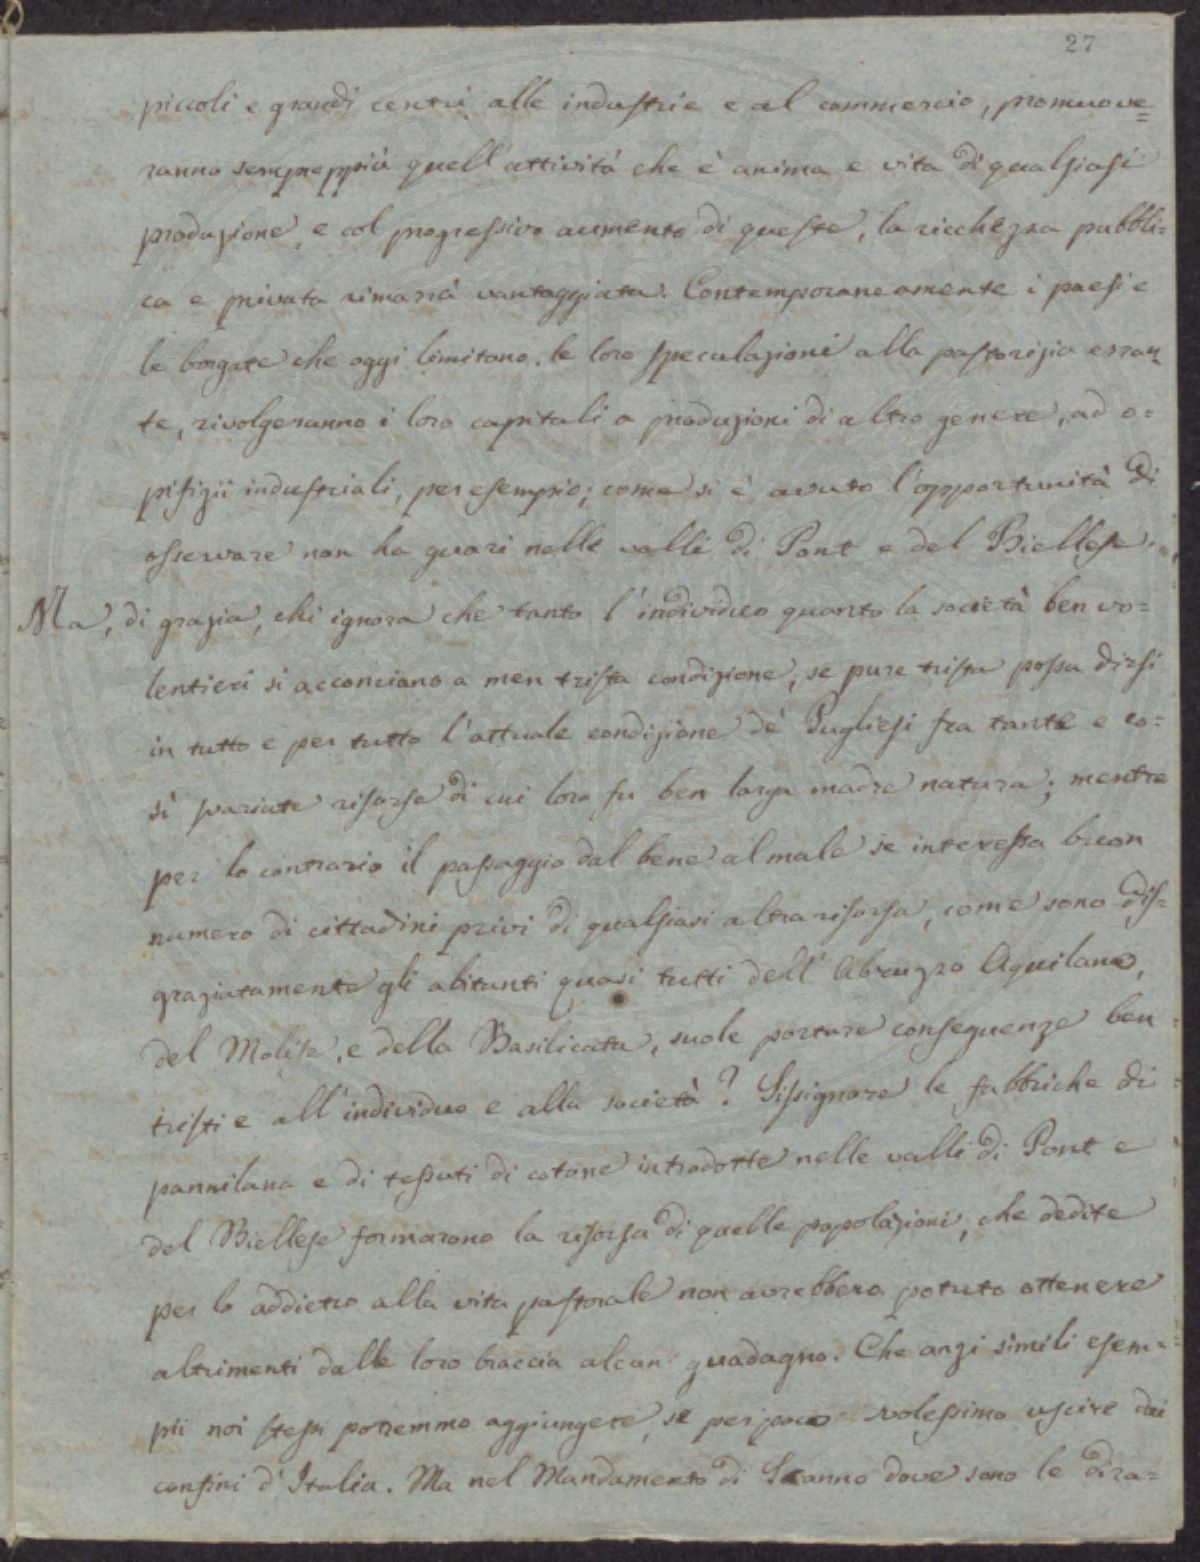 27
piccoli e grandi centri alle industrie e al commercio, promuove=
ranno sempreppiù quell'attività che è anima e vita di qualsiasi
produzione, e col progressivo aumento di queste, la ricchezza pubbli=
ca e privata rimarrà vantaggiata. Contemporaneamente i paesi e
le borgate che oggi limitano le loro speculazioni alla pastorizia erran
te, rivolgeranno i loro capitali a produzioni di altro genere, ad o=
pifizii industriali, per esempio; come si è avuto l'opportunità di
osservare non ha guari nelle valli di Pont e del Biellese.
Ma, di grazia, chi ignora che tanto l'individuo quanto la società ben vo=
lentieri si acconciano a men trista condizione, se pure trista possa dirsi
in tutto e per tutto l'attuale condizione de' Pugliesi fra tante e co=
sì svariate risorse di cui loro fu ben larga madre natura; mentre
per lo contrario il passaggio dal bene al male se interessa buon
numero di cittadini privi di qualsiasi altra risorsa, come sono dis=
graziatamente gli abitanti quasi tutti dell'Abruzzo Aquilano,
del Molise, e della Basilicata, suole portare conseguenze ben
tristi e all'individuo e alla società? Sissignore le fabbriche di
pannilana e di tessuti di cotone introdotte nelle valli di Pont e
del Biellese formarono la risorsa di quelle popolazioni, che dedite
per lo addietro alla vita pastorale non avrebbero potuto ottenere
altrimenti dalle loro braccia alcun guadagno. Che anzi simili esem=
pii noi stessi potremmo aggiungere, se per poco volessimo uscire dai
confini d'Italia. Ma nel Mandamento di Scanno dove sono le dira=